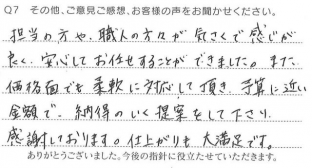 Q7 その他、ご意見ご感想、お客様の声をお聞かせください。
担当の方や、職人の方々が気さくで感じが
良く、安心してお任せすることができました。また
価格面でも柔軟に対応して頂き、予算に近い
金額で、納得のいく提案をして下さり
感謝しております。仕上がりも大満足です。
ありがとうございました。今後の指針に役立たせていただきます。